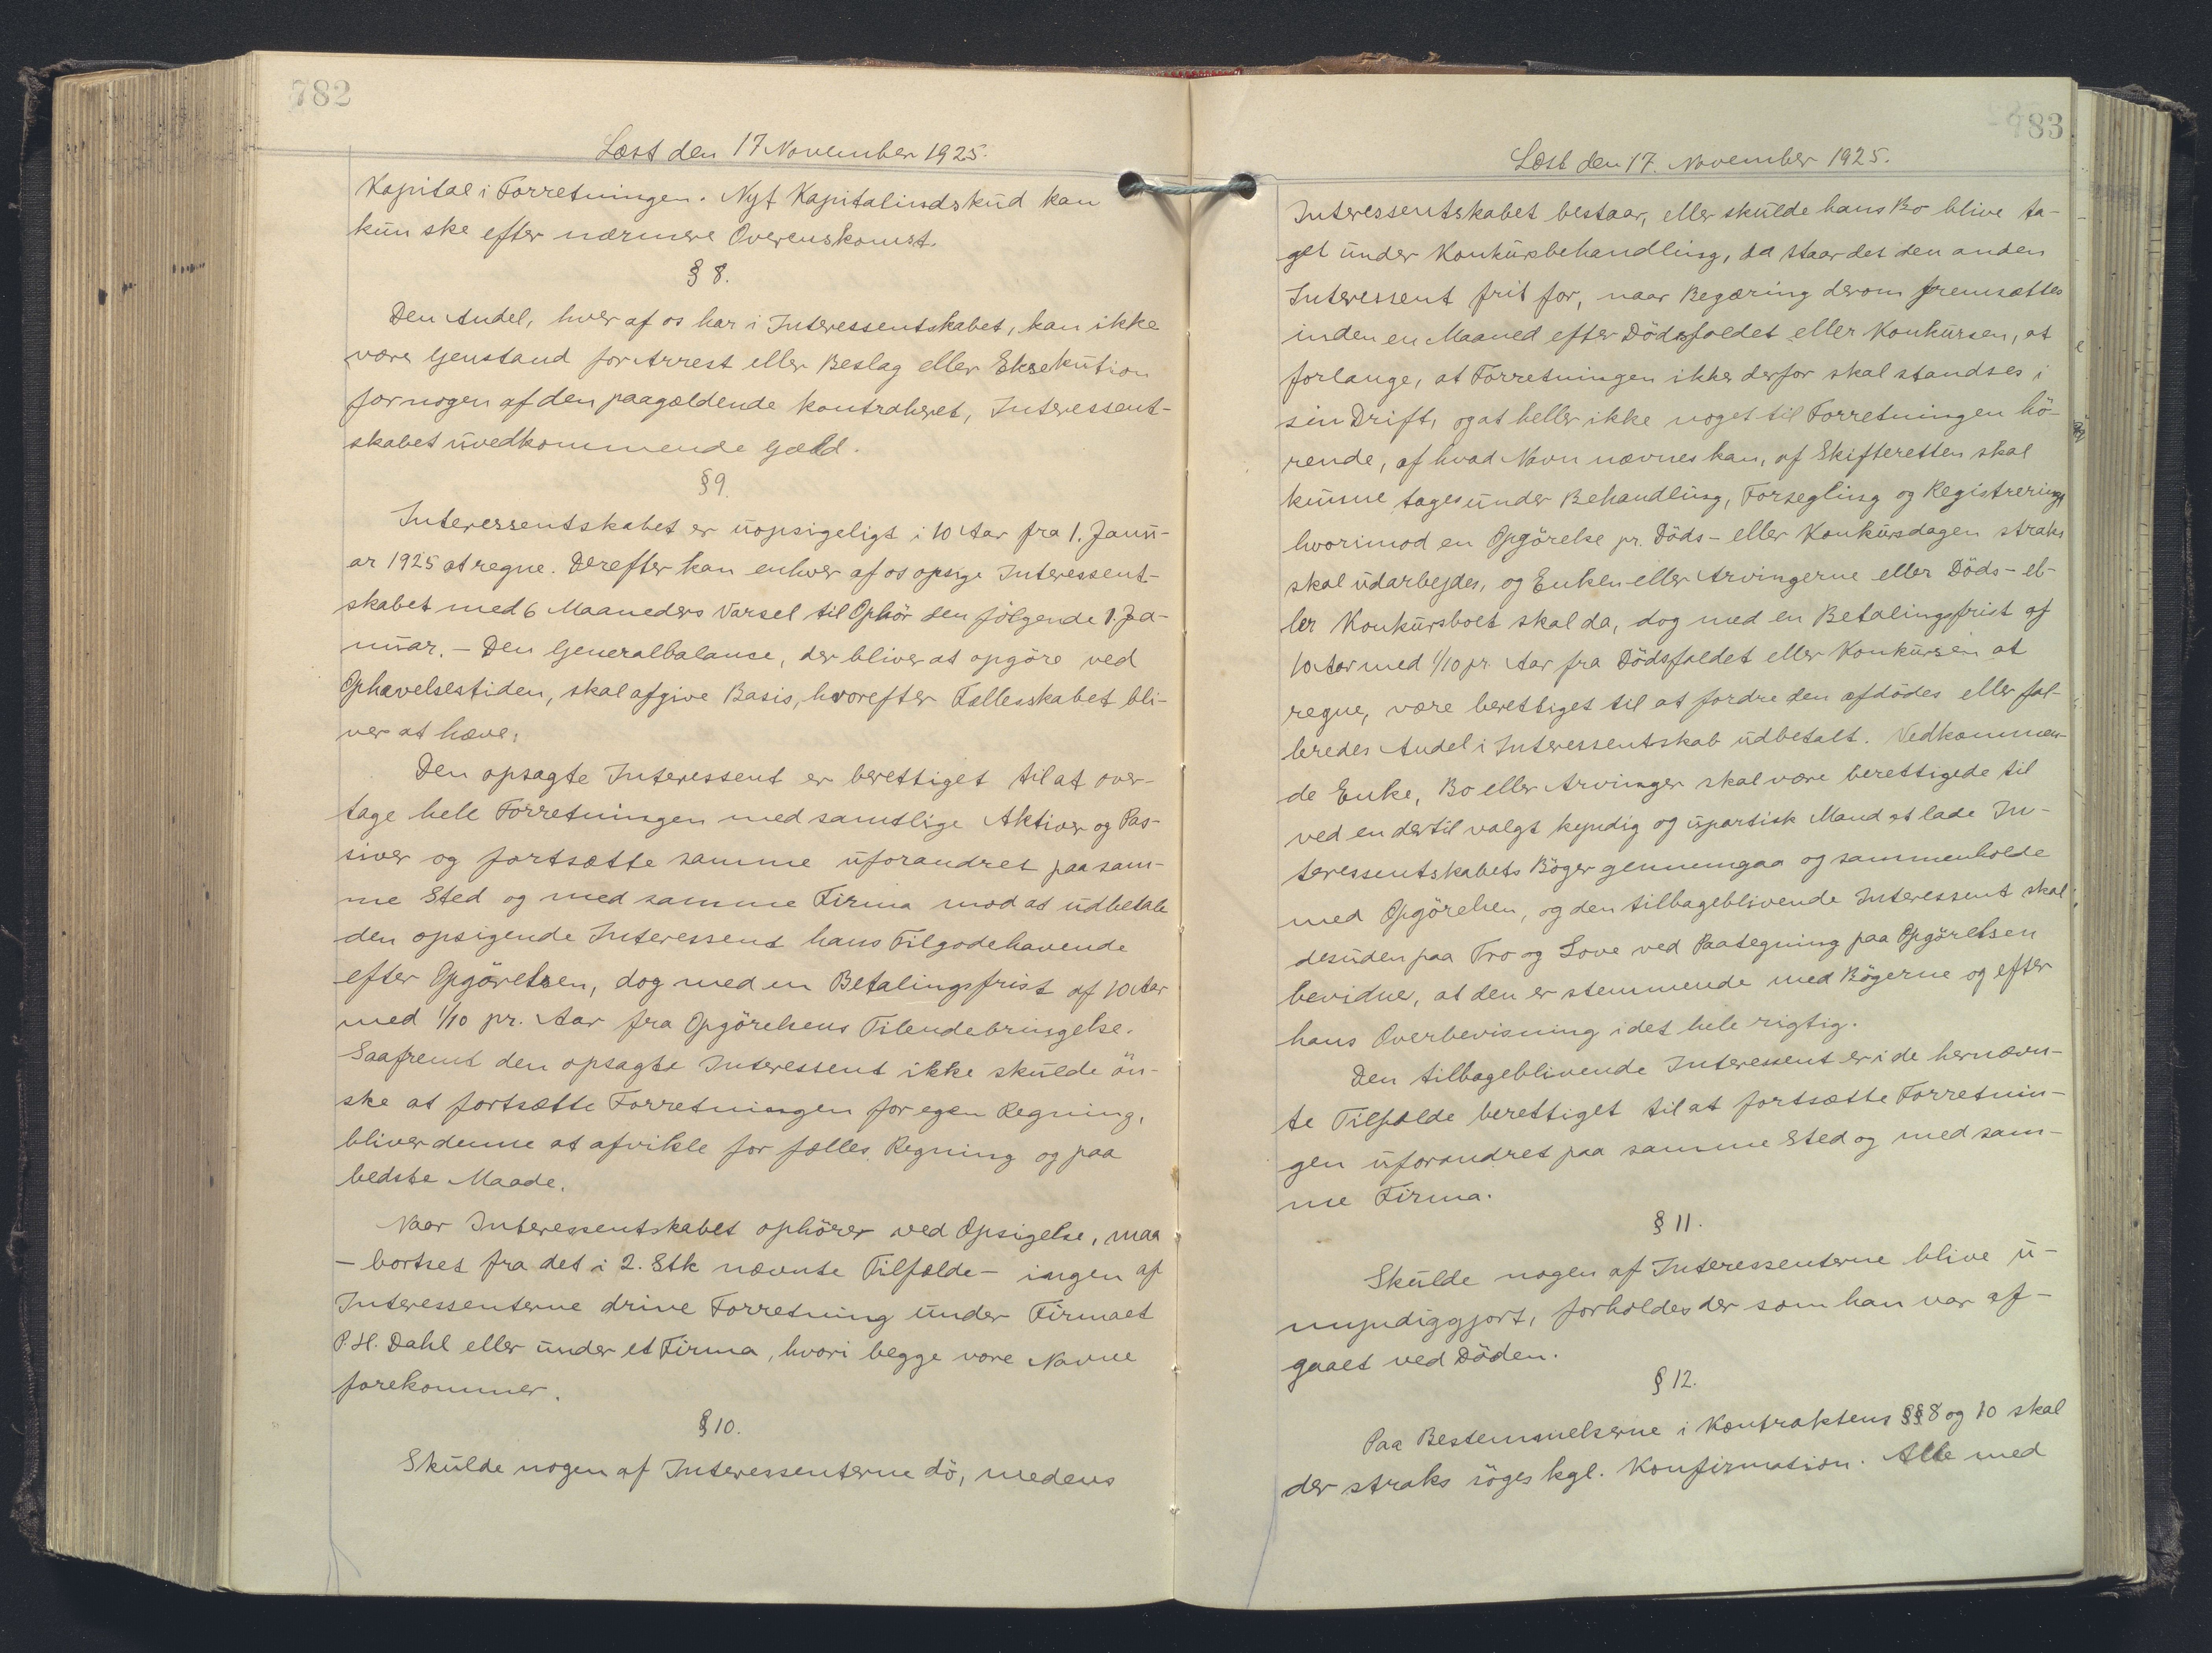 782
Læst den 17 November 1925.
Kapital i Forretningen. Nyt Kapitalindskud kan
kun ske efter nærmere Overenskomst.
§ 8.
Den Andel, hver af os har i Interessentskabet, kan ikke
være Genstand for Arrest eller Beslag eller Eksekution
for nogen af den paagældende kontraheret, Interessent-
skabet uvedkommende Gæld.
§ 9.
Interessentskabet er uopsigeligt i 10 Aar fra 1. Janu-
ar 1925 at regne. Derefter kan enhver af os opsige Interessent-
skabet med 6 Maaneders Varsel til Ophör den fölgende 1. Ja-
nuar. - Den Generalbalance, der bliver at opgöre ved
Ophævelsestiden, skal afgive Basis, hvorefter Fællesskabet bli-
ver at hæve.
Den opsagte Interessent er berettiget til at over-
tage hele Forretningen med samtlige Aktiver og Pas-
siver og fortsætte samme uforandret paa sam-
me Sted og med samme Firma mod at udbetale
den opsigende Interessent hans Tilgodehavende
efter Opgörelsen, dog med en Betalingsfrist af 10 Aar
med 1/10 pr. Aar fra Opgörelsens Tilendebringelse.
Saafremt den opsagte Interessent ikke skulde ön-
ske at fortsætte Forretningen for egen Regning,
bliver denne at afvikle for fælles Regning og paa
bedste Maade.
Naar Interessentskabet ophörer ved Opsigelse, maa
- bortset fra det i 2. Stk nævnte Tilfælde - ingen af
Interessenterne drive Forretning under Firmaet
P. H. Dahl eller under et Firma, hvori begge vore Navne
forekommer.
§ 10.
Skulde nogen af Interessenterne dö, medens
783
Læst den 17. November 1925.
Interessentskabet bestaar, eller skulde hans Bo blive ta-
get under Konkursbehandling, da staar det den anden
Interessent frit for, naar Begæring derom fremsættes
inden en Maaned efter Dödsfaldet eller Konkursen, at
forlange, at Forretningen ikke derfor skal standses i
sin Drift, og at heller ikke noget til Forretningen hö-
rende, af hvad Navn nævnes kan, af Skifteretten skal
kunne tages under Behandling, Forsegling og Registrering,
hvorimod en Opgörelse pr. Döds- eller Konkursdagen straks
skal udarbejdes, og Enken eller Arvingerne eller Döds- el-
ler Konkursboet skal da, dog med en Betalingsfrist af
10 Aar med 1/10 pr. Aar fra Dödsfaldet eller Konkursen at
regne, være berettiget til at fordre den afdödes eller fal-
leredes Andel i Interessentskab udbetalt. Vedkommen-
de Enke, Bo eller Arvinger skal være berettigede til
ved en dertil valgt kyndig og upartisk Mand at lade In-
teressentskabets Böger gennemgaa og sammenholde
med Opgörelsen, og den tilbageblivende Interessent skal
desuden paa Tro og Love ved Paategning paa Opgörelsen
bevidne, at den er stemmende med Bögerne og efter
hans Overbevisning i det hele rigtig.
Den tilbageblivende Interessent er i de hernævn-
te Tilfælde berettiget til at fortsætte Forretnin-
gen uforandret paa samme Sted og med sam-
me Firma.
§ 11.
Skulde nogen af Interessenterne blive u-
myndiggjort, forholdes der som han var af-
gaaet ved Döden.
§ 12.
Paa Bestemmelserne i Kontraktens §§ 8 og 10 skal
der straks söges kgl. Konfirmation. Alle med